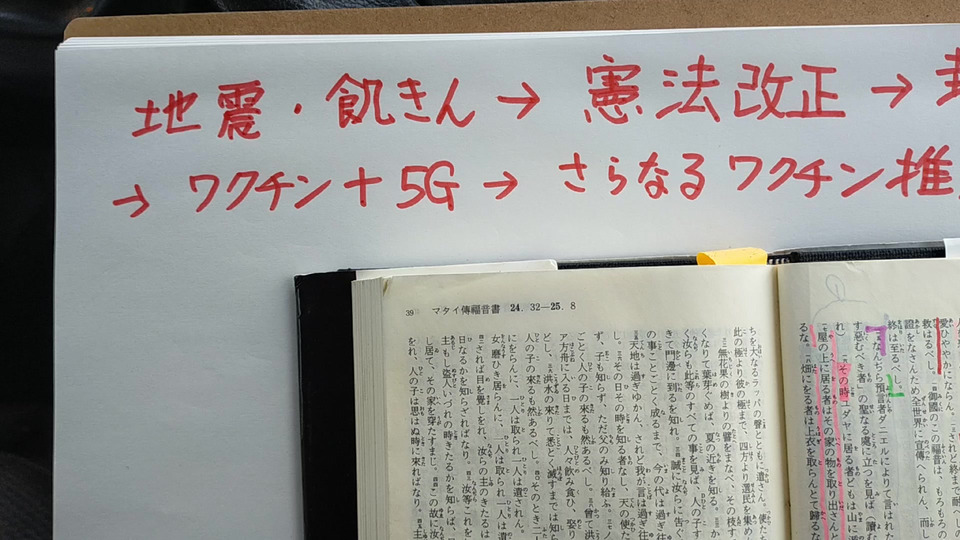 地震・飢きん → 憲法改正 →
→ ワクチン + 5G → さらなるワクチン推
39 マタイ傳福音書 24. 32―25. 8
ちを大なるラッパの聲とともに遣さん。使たち
此の極より彼の極まで、四方より選民を集め
無花果の樹よりの譬をまなべ、その枝す
くなりて葉芽ぐめば、夏の近きを知る。
く汝らも此等のすべての事を見ば、人の子す
きて門邊に到るを知れ。誠に汝らに告ぐ
の事ことごとく成るまで、今の代は過ぎ往
天地は過ぎゆかん、されど我が言は過ぎ往
し。その日その時を知る者なし、天の使た
ず、子も知らず、ただ父のみ知り給ふ。ノ
ごとく人の子の來るも然あるべし。曾て洪
ア方舟に入る日までは、人々飮み食ひ、娶り
どし、洪水の來りて悉く滅すまでは知ら
人の子の來るも然あるべし。そのとき二人
にをらんに、一人は取られ一人は遺されん。
女磨ひき居らんに、一人は取られ一人は遺
されば目を覺しをれ、汝らの主のきたるは
日なるかを知らざればなり。汝等これを
主もし盜人いづれの時きたるかを知らば、
し居て、その家を穿たすまじ。この故に汝
をれ、人の子は思はぬ時に來ればなり。主
愛ひややかにならん。されど終まで耐へしの
救はるべし。御國のこの福音は、もろもろの
證をなさんため全世界に宣傳へられん、而し
終は至るべし。
なんぢら預言者ダニエルによりて言はれた
す惡むべき者』の聖なる處に立つを見ば（讀む
れ）その時ユダヤに居る者どもは山に
屋の上に居る者はその家の物を取り出さんと
るな。畑にをる者は上衣を取らんとて歸るな